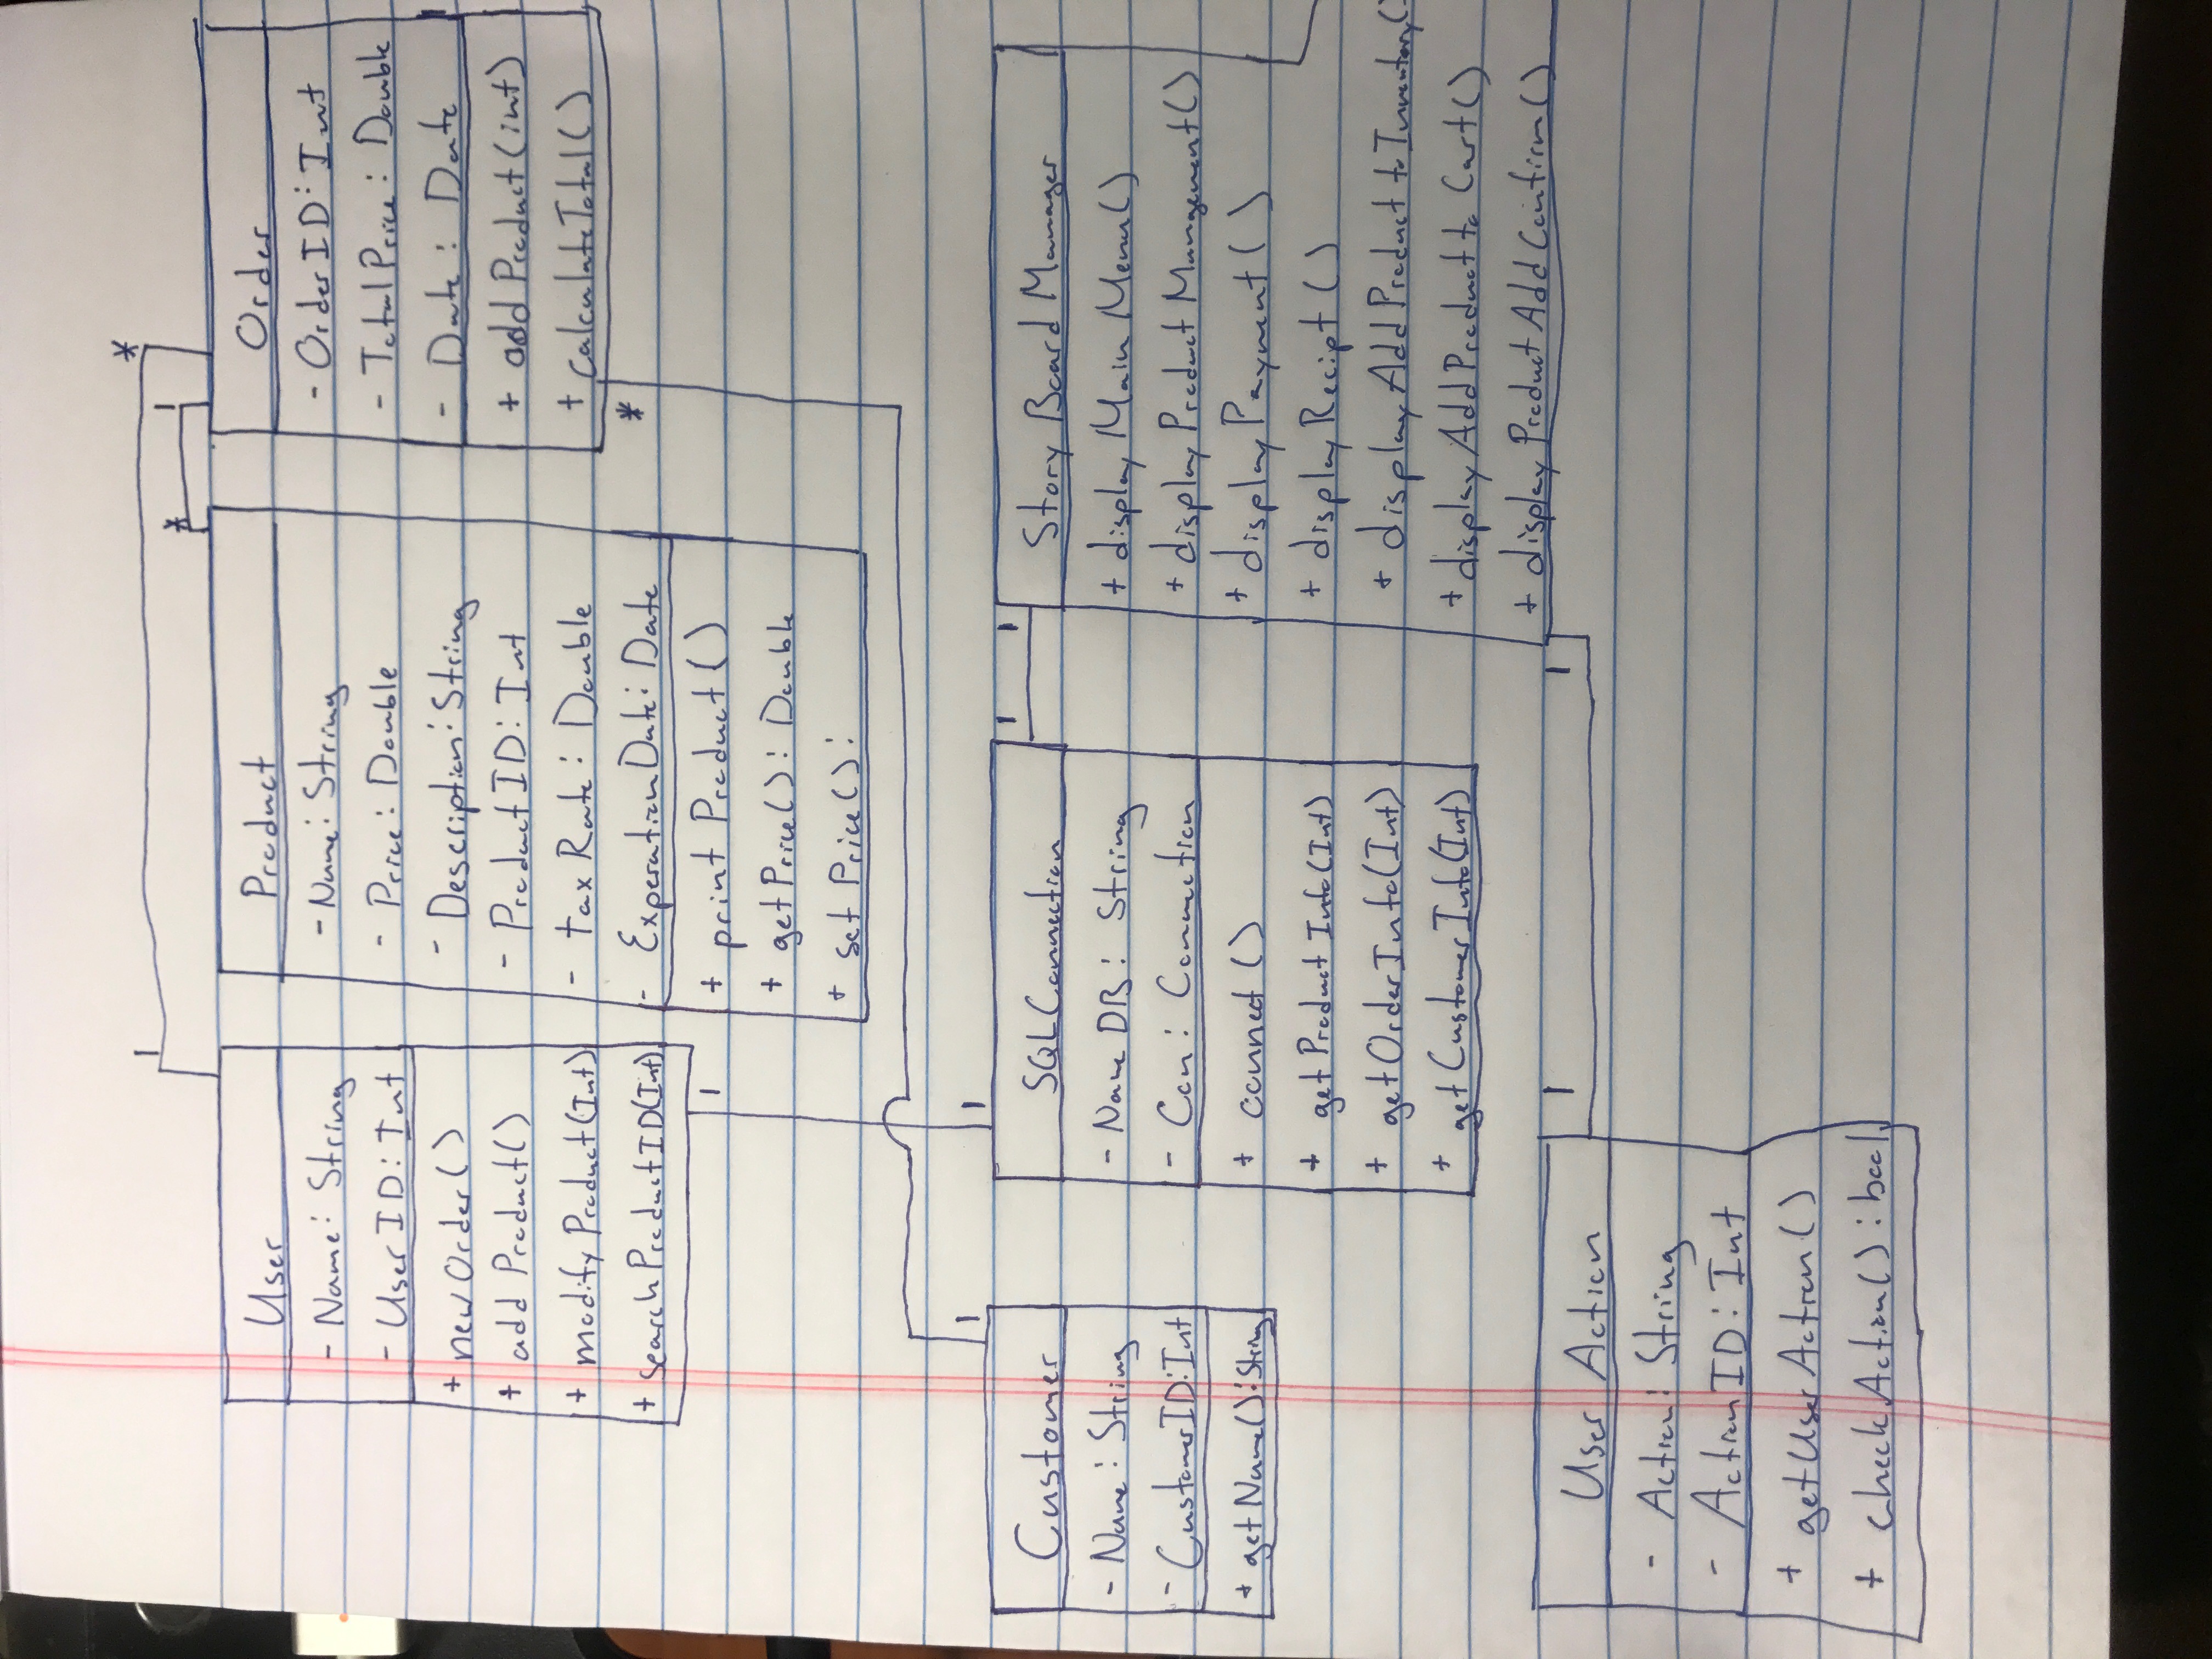 1 *
* 1
User
- Name: String
- UserID: Int
+ newOrder()
+ add Product()
+ modify Product(Int)
+ searchProductID(Int)
1
Product
- Name: String
- Price: Double
- Description: String
- ProductID: Int
- tax Rate: Double
- ExperationDate: Date
+ print Product()
+ getPrice(): Double
+ set Price():
Order
- OrderID: Int
- TotalPrice: Double
- Date: Date
+ add Product(int)
+ calculateTotal()
*
1
Customer
- Name: String
- CustomerID: Int
+ getName(): String
1
SQLConnection
- NameDB: String
- Con: Connection
+ connect()
+ getProductInfo(Int)
+ getOrderInfo(Int)
+ getCustomerInfo(Int)
1 1
Story Board Manager
+ display Main Menu()
+ display Product Mangement()
+ display Payment()
+ display Recipt()
+ display Add Product to Inventory()
+ display Add Product to Cart()
+ display Product Add Confirm()
1 1
User Action
- Action: String
- ActionID: Int
+ getUserAction()
+ checkAction(): bool